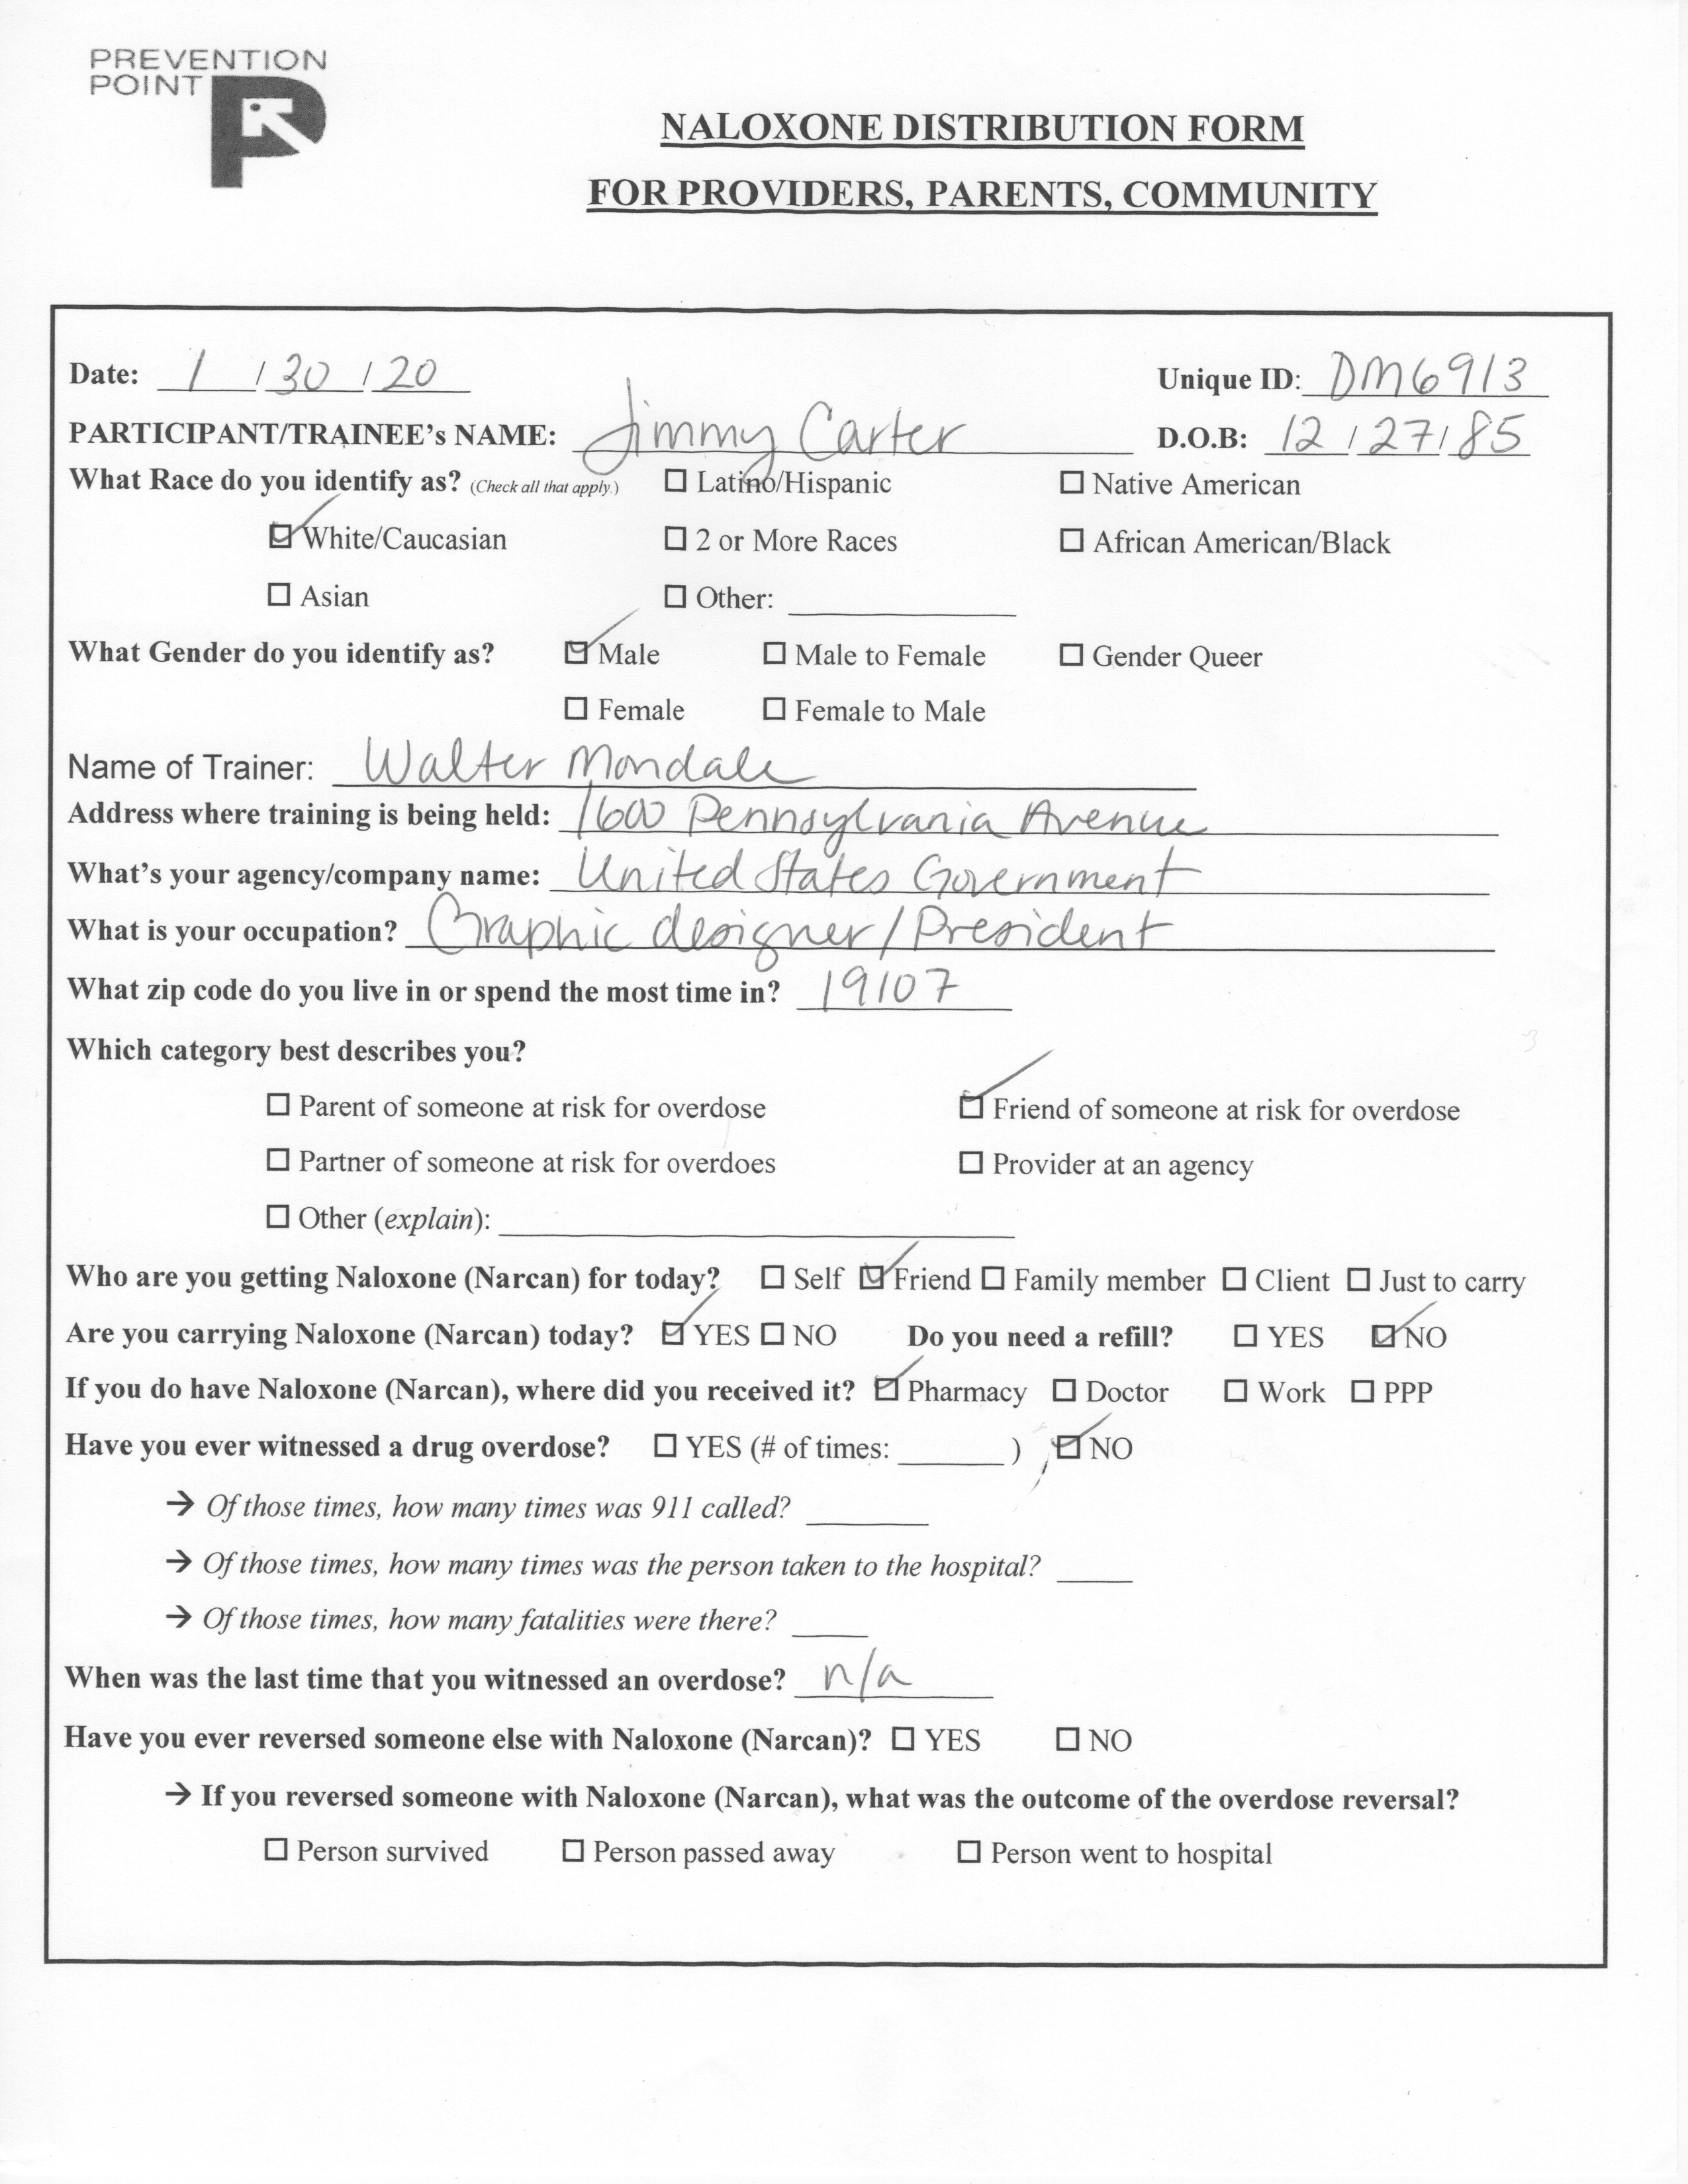 PREVENTION
POINT
NALOXONE DISTRIBUTION FORM
FOR PROVIDERS, PARENTS, COMMUNITY
Date: 1 / 30 / 20 Unique ID: DM6913
PARTICIPANT/TRAINEE's NAME: Jimmy Carter D.O.B: 12 / 27 / 85
What Race do you identify as? (Check all that apply.) ☐ Latino/Hispanic ☐ Native American
☑ White/Caucasian ☐ 2 or More Races ☐ African American/Black
☐ Asian ☐ Other: ____
What Gender do you identify as? ☑ Male ☐ Male to Female ☐ Gender Queer
☐ Female ☐ Female to Male
Name of Trainer: Walter Mondale
Address where training is being held: 1600 Pennsylvania Avenue
What's your agency/company name: United States Government
What is your occupation? Graphic designer/President
What zip code do you live in or spend the most time in? 19107
Which category best describes you?
☐ Parent of someone at risk for overdose ☑ Friend of someone at risk for overdose
☐ Partner of someone at risk for overdoes ☐ Provider at an agency
☐ Other (explain): ____
Who are you getting Naloxone (Narcan) for today? ☐ Self ☑ Friend ☐ Family member ☐ Client ☐ Just to carry
Are you carrying Naloxone (Narcan) today? ☑ YES ☐ NO Do you need a refill? ☐ YES ☑ NO
If you do have Naloxone (Narcan), where did you received it? ☑ Pharmacy ☐ Doctor ☐ Work ☐ PPP
Have you ever witnessed a drug overdose? ☐ YES (# of times: ____ ) ☑ NO
→ Of those times, how many times was 911 called? ____
→ Of those times, how many times was the person taken to the hospital? ____
→ Of those times, how many fatalities were there? ____
When was the last time that you witnessed an overdose? n/a
Have you ever reversed someone else with Naloxone (Narcan)? ☐ YES ☐ NO
→ If you reversed someone with Naloxone (Narcan), what was the outcome of the overdose reversal?
☐ Person survived ☐ Person passed away ☐ Person went to hospital